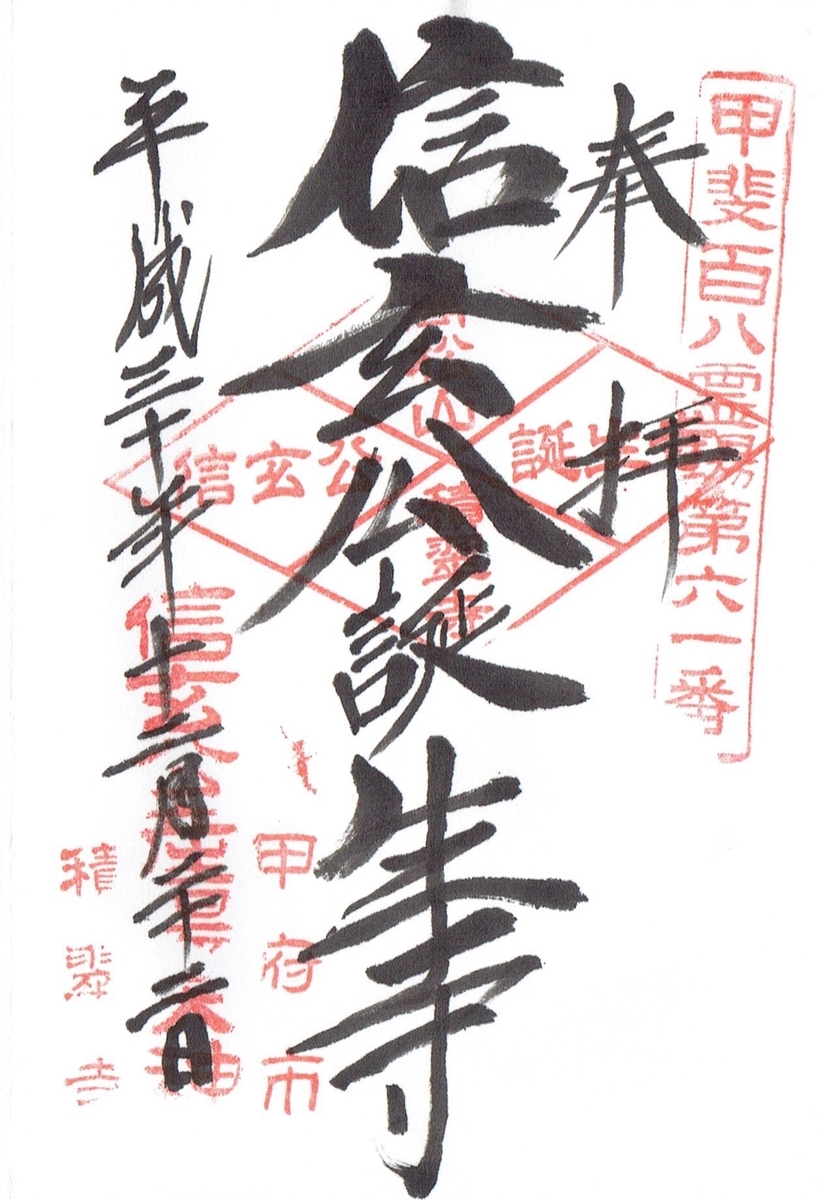 甲斐百八霊場第六一番
奉拝
信玄公誕生寺
松山
積翠寺
信玄公
誕生
甲府市
平成三十年十二月二十二日
積翠寺